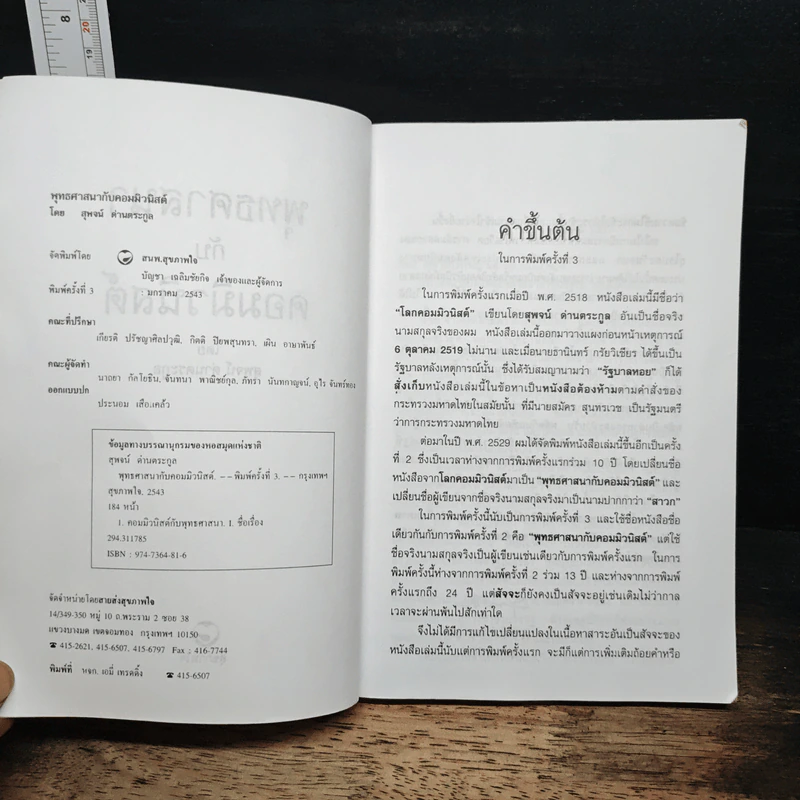 8
20
19
พุทธศาสนากับคอมมิวนิสต์
โดย สุพจน์ ด่านตระกูล
จัดพิมพ์โดย สนพ.สุขภาพใจ
บัญชา เฉลิมชัยกิจ เจ้าของและผู้จัดการ
พิมพ์ครั้งที่ 3 : มกราคม 2543
คณะที่ปรึกษา
เกียรติ ปรัชญาศิลปวุฒิ, กิตติ ปิยพสุนทรา, เผิน อาษาพันธ์
คณะผู้จัดทำ
นาถยา กัลโยธิน, จันทนา พาณิชย์กุล, ภัทรา นันทกาญจน์, อุไร จันทร์ทอง
ออกแบบปก
ประนอม เสือแคล้ว
ข้อมูลทางบรรณานุกรมของหอสมุดแห่งชาติ
สุพจน์ ด่านตระกูล
พุทธศาสนากับคอมมิวนิสต์. -- พิมพ์ครั้งที่ 3. -- กรุงเทพฯ
สุขภาพใจ, 2543
184 หน้า
1. คอมมิวนิสต์กับพุทธศาสนา. I. ชื่อเรื่อง
294.311785
ISBN : 974-7364-81-6
จัดจำหน่ายโดยสายส่งสุขภาพใจ
14/349-350 หมู่ 10 ถ.พระราม 2 ซอย 38
แขวงบางมด เขตจอมทอง กรุงเทพฯ 10150
☎ 415-2621, 415-6507, 415-6797 Fax : 416-7744
พิมพ์ที่ หจก. เอมี่ เทรดดิ้ง ☎ 415-6507
คำขึ้นต้น
ในการพิมพ์ครั้งที่ 3
ในการพิมพ์ครั้งแรกเมื่อปี พ.ศ. 2518 หนังสือเล่มนี้มีชื่อว่า
"โลกคอมมิวนิสต์" เขียนโดยสุพจน์ ด่านตระกูล อันเป็นชื่อจริง
นามสกุลจริงของผม หนังสือเล่มนี้ออกมาวางแผงก่อนหน้าเหตุการณ์
6 ตุลาคม 2519 ไม่นาน และเมื่อนายธานินทร์ กรัยวิเชียร ได้ขึ้นเป็น
รัฐบาลหลังเหตุการณ์นั้น ซึ่งได้รับสมญานามว่า "รัฐบาลหอย" ก็ได้
สั่งเก็บหนังสือเล่มนี้ในข้อหาเป็นหนังสือต้องห้ามตามคำสั่งของ
กระทรวงมหาดไทยในสมัยนั้น ที่มีนายสมัคร สุนทรเวช เป็นรัฐมนตรี
ว่าการกระทรวงมหาดไทย
ต่อมาในปี พ.ศ. 2529 ผมได้จัดพิมพ์หนังสือเล่มนี้ขึ้นอีกเป็นครั้ง
ที่ 2 ซึ่งเป็นเวลาห่างจากการพิมพ์ครั้งแรกร่วม 10 ปี โดยเปลี่ยนชื่อ
หนังสือจากโลกคอมมิวนิสต์มาเป็น "พุทธศาสนากับคอมมิวนิสต์" และ
เปลี่ยนชื่อผู้เขียนจากชื่อจริงนามสกุลจริงมาเป็นนามปากกาว่า "สาวก"
ในการพิมพ์ครั้งนี้นับเป็นการพิมพ์ครั้งที่ 3 และใช้ชื่อหนังสือชื่อ
เดียวกันกับการพิมพ์ครั้งที่ 2 คือ "พุทธศาสนากับคอมมิวนิสต์" แต่ใช้
ชื่อจริงนามสกุลจริงเป็นผู้เขียนเช่นเดียวกับการพิมพ์ครั้งแรก ในการ
พิมพ์ครั้งนี้ห่างจากการพิมพ์ครั้งที่ 2 ร่วม 13 ปี และห่างจากการพิมพ์
ครั้งแรกถึง 24 ปี แต่สัจจะก็ยังคงเป็นสัจจะอยู่เช่นเดิมไม่ว่ากาล
เวลาจะผ่านพ้นไปสักเท่าใด
จึงไม่ได้มีการแก้ไขเปลี่ยนแปลงในเนื้อหาสาระอันเป็นสัจจะของ
หนังสือเล่มนี้นับแต่การพิมพ์ครั้งแรก จะมีก็แต่การเพิ่มเติมถ้อยคำหรือ